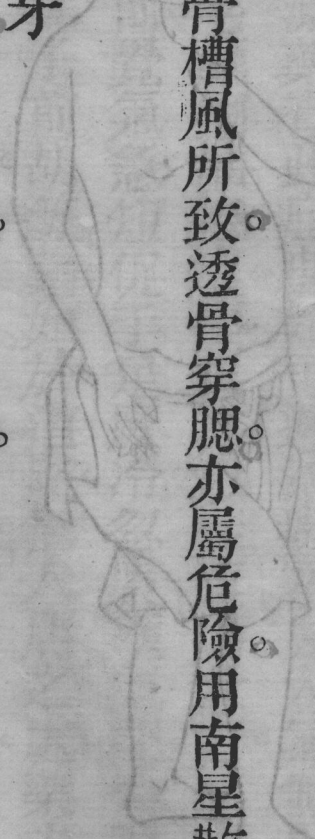 骨槽風所致。透骨穿腮。亦屬危險。用南星散
牙